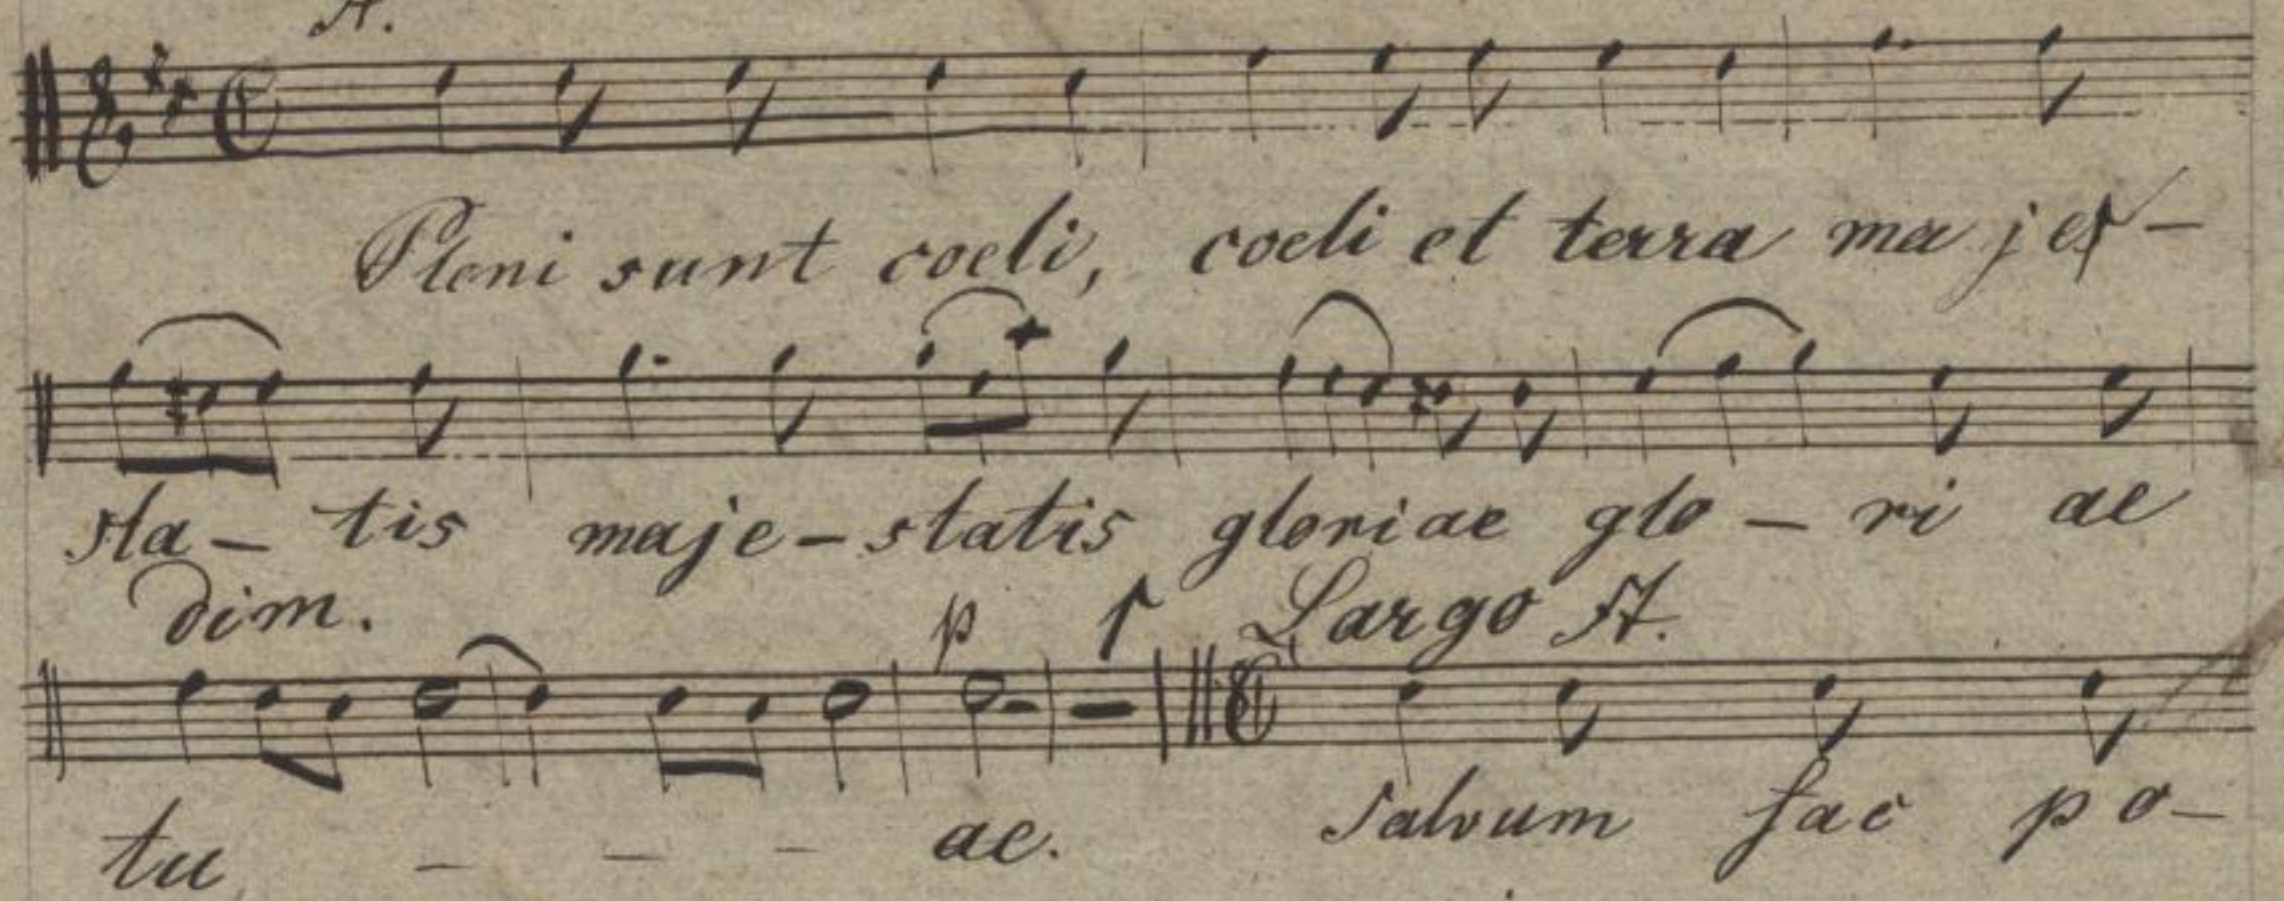 A.
Pleni sunt coeli, coeli et terra ma jes-
sta- tis maje-statis gloriae glo- ri ae
dim. p f Largo A.
tu - - - ae. salvum fac po-